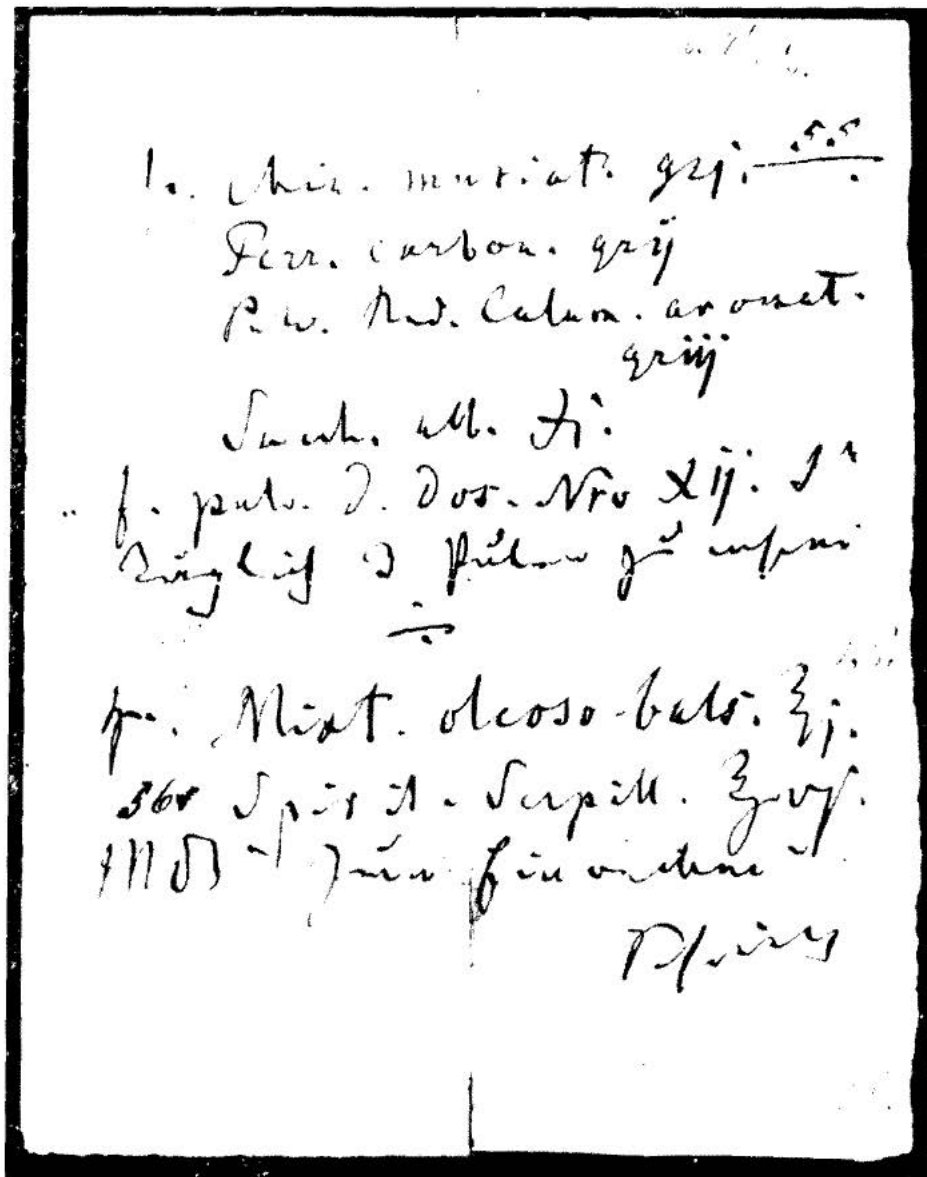 Chin. muriat. grj. 55
Ferr. carbon. grij
Pulv. Rad. Calam. aromat.
griij
Sacch. alb. ℈j.
f. pulv. D. Dos. Nro Xij. S
Täglich 3 Pulver zu nehmen
Mixt. oleoso-bals. ℥j.
568 Spirit. Serpill. ℥vj.
MDS Zum Einreiben